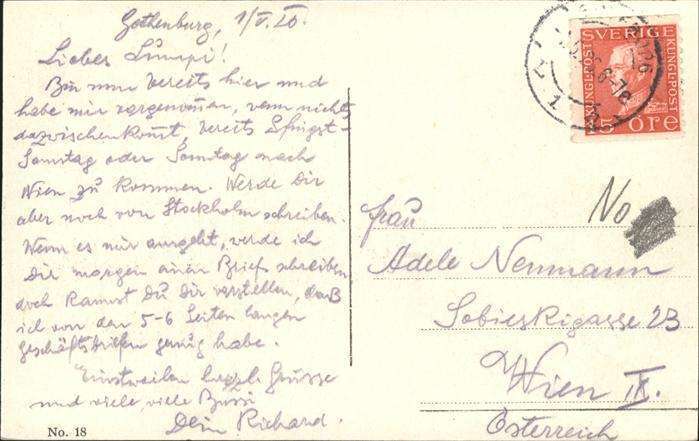 Gothenburg, 1/V. 26.
Lieber Lumpi!
Bin nun bereits hier und
habe mir vorgenommen, wenn nichts
dazwischenkommt, bereits Pfingst-
Samstag oder Sonntag nach
Wien zu kommen. Werde Dir
aber noch von Stockholm schreiben.
Wenn es mir ausgeht, werde ich
Dir morgen einen Brief schreiben
doch kannst Du Dir vorstellen, daß
ich von den 5-6 Seiten langen
Geschäftsbriefen genug habe.
Einstweilen herzl. Grüsse
und viele viele Bussi
Dein Richard.
No. 18
SVERIGE
KUNGL·POST
KUNGL·POST
ÖRE
No
Frau
Adele Neumann
Sobieskigasse 23
Wien IX.
Österreich